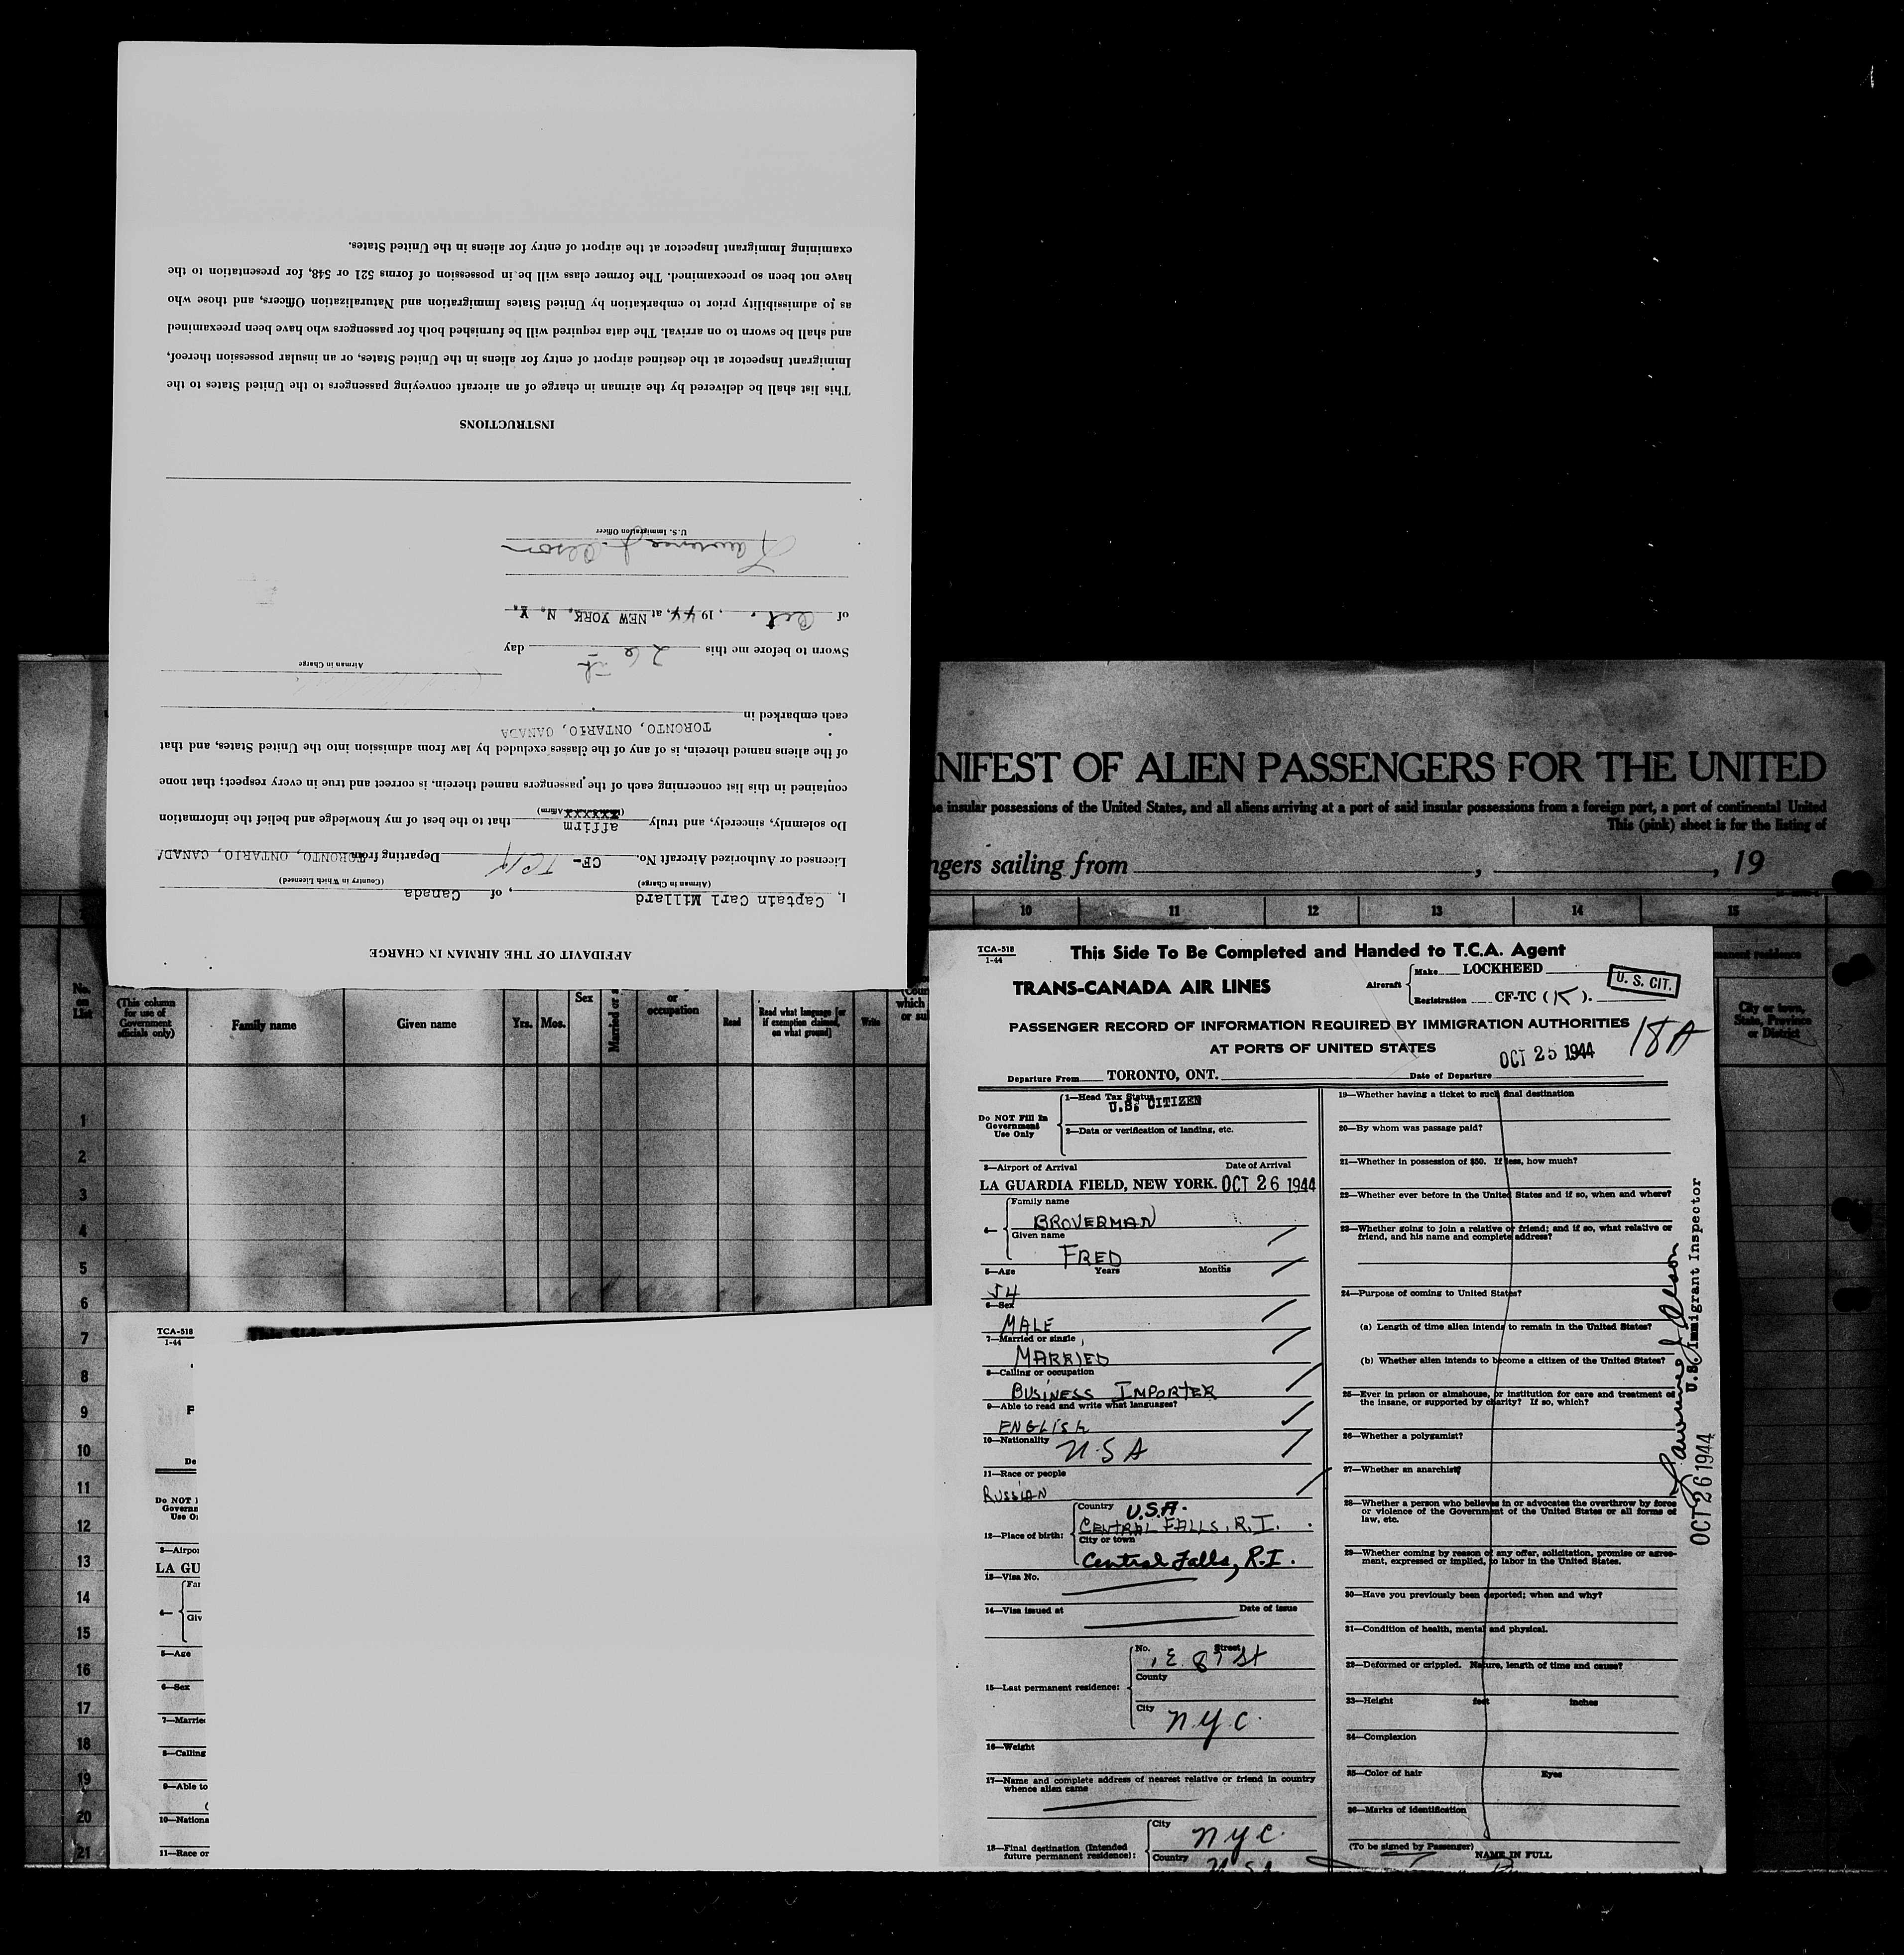 AFFIDAVIT OF THE AIRMAN IN CHARGE
I, Captain Carl Millard, of Canada
(Airman in Charge) (Country in Which Licensed)
Licensed or Authorized Aircraft No. CF- TCK Departing from TORONTO, ONTARIO, CANADA
Do solemnly, sincerely, and truly affirm that to the best of my knowledge and belief the information
(xxxxxxx Affirm)
contained in this list concerning each of the passengers named therein, is correct and true in every respect; that none
of the aliens named therein, is of any of the classes excluded by law from admission into the United States, and that
TORONTO, ONTARIO, CANADA
each embarked in
Airman in Charge
Sworn to before me this 26th day
of Oct., 1944, at NEW YORK, N. Y.
Lawrence J. Olson
U.S. Immigration Officer
INSTRUCTIONS
This list shall be delivered by the airman in charge of an aircraft conveying passengers to the United States to the
Immigrant Inspector at the destined airport of entry for aliens in the United States, or an insular possession thereof,
and shall be sworn to on arrival. The data required will be furnished both for passengers who have been preexamined
as to admissibility prior to embarkation by United States Immigration and Naturalization Officers, and those who
have not been so preexamined. The former class will be in possession of forms 521 or 548, for presentation to the
examining Immigrant Inspector at the airport of entry for aliens in the United States.
NIFEST OF ALIEN PASSENGERS FOR THE UNITED
e insular possessions of the United States, and all aliens arriving at a port of said insular possessions from a foreign port, a port of continental United
This (pink) sheet is for the listing of
ngers sailing from , , 19
10 11 12 13 14 15
manent residence
No. on List
(This column for use of Government officials only)
Family name
Given name
Yrs. Mos.
Sex
Married or s
or occupation
Read
Read what language [or if exemption claimed, on what ground]
Write
(Coun
which
or su
City or town, State, Province or District
1
2
3
4
5
6
7
8
9
10
11
12
13
14
15
16
17
18
19
20
21
TCA-518
1-44
This Side To
P
De
Do NOT
Governm
Use O
3—Airpor
LA GU
Fa
4—
Giv
5—Age
6—Sex
7—Married
8—Calling
9—Able to
10—Nationa
11—Race or
TCA-518
1-44
This Side To Be Completed and Handed to T.C.A. Agent
TRANS-CANADA AIR LINES
Aircraft Make LOCKHEED
Registration CF-TC (K).
U. S. CIT.
PASSENGER RECORD OF INFORMATION REQUIRED BY IMMIGRATION AUTHORITIES
AT PORTS OF UNITED STATES
18A
Departure From TORONTO, ONT. Date of Departure OCT 25 1944
Do NOT Fill In
Government
Use Only
1—Head Tax Status
U.S. CITIZEN
2—Data or verification of landing, etc.
3—Airport of Arrival Date of Arrival
LA GUARDIA FIELD, NEW YORK. OCT 26 1944
4—
Family name
BROVERMAN
Given name
FRED
5—Age Years Months
54
6—Sex
MALE
7—Married or single
MARRIED
8—Calling or occupation
BUSINESS IMPORTER
9—Able to read and write what languages?
ENGLISH
10—Nationality
U.S A
11—Race or people
RUSSIAN
12—Place of birth:
Country U.S.A.
CENTRAL FALLS, R.I.
City or town
Central Falls, R.I.
13—Visa No.
14—Visa issued at Date of issue
15—Last permanent residence:
No. Street
, E. 87 St
County
City
N.Y.C.
16—Weight
17—Name and complete address of nearest relative or friend in country
whence alien came
18—Final destination (Intended
future permanent residence):
City
N.Y.C.
Country
U.S.A
19—Whether having a ticket to such final destination
20—By whom was passage paid?
21—Whether in possession of $50. If less, how much?
22—Whether ever before in the United States and if so, when and where?
23—Whether going to join a relative or friend; and if so, what relative or
friend, and his name and complete address?
24—Purpose of coming to United States?
(a) Length of time alien intends to remain in the United States?
(b) Whether alien intends to become a citizen of the United States?
25—Ever in prison or almshouse, or institution for care and treatment of
the insane, or supported by charity? If so, which?
26—Whether a polygamist?
27—Whether an anarchist?
28—Whether a person who believes in or advocates the overthrow by force
or violence of the Government of the United States or all forms of
law, etc.
29—Whether coming by reason of any offer, solicitation, promise or agree-
ment, expressed or implied, to labor in the United States.
30—Have you previously been deported; when and why?
31—Condition of health, mental and physical.
32—Deformed or crippled. Nature, length of time and cause?
33—Height feet inches
34—Complexion
35—Color of hair Eyes
36—Marks of identification
(To be signed by Passenger)
NAME IN FULL
OCT 26 1944
Lawrence J. Olson
U.S. Immigrant Inspector